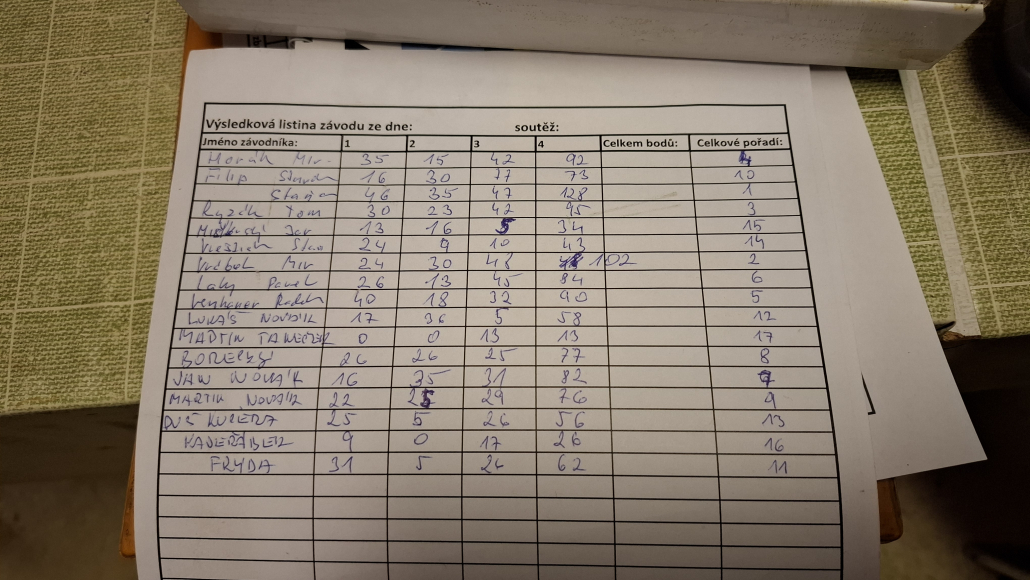 Výsledková listina závodu ze dne: soutěž:
Jméno závodníka: 1 2 3 4 Celkem bodů: Celkové pořadí:
Horák Mir. 35 15 42 92 4
Filip 16 30 73 10
46 35 47 128 1
Ryzák Tom 30 23 42 95 3
13 16 5 34 15
24 9 10 43 14
Mir 24 30 48 102 2
Pavel 26 13 45 84 6
Radek 40 18 32 90 5
LUKÁŠ NOVÁK 17 36 5 58 12
MARTIN 0 0 13 13 17
26 26 25 77 8
JAN NOVÁK 16 35 31 82 7
MARTIN NOVÁK 22 25 29 76 9
KUČERA 25 5 26 56 13
9 0 17 26 16
FRYDA 31 5 26 62 11